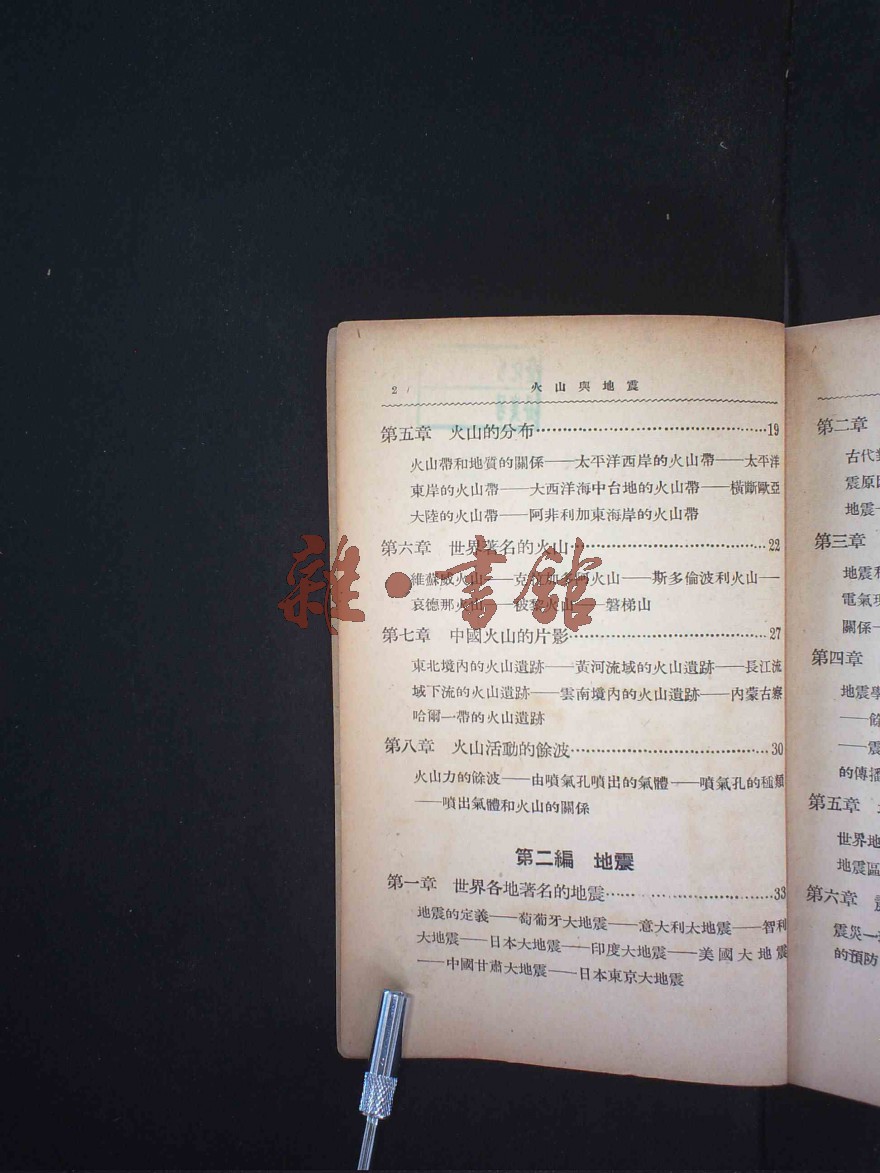 2
火山與地震
第五章 火山的分布……………………………19
火山帶和地質的關係——太平洋西岸的火山帶——太平洋
東岸的火山帶——大西洋海中台地的火山帶——橫斷歐亞
大陸的火山帶——阿非利加東海岸的火山帶
第六章 世界著名的火山……………………………22
維蘇威火山——克拉加多阿火山——斯多倫波利火山——
哀德那火山——火山——磐梯山
第七章 中國火山的片影……………………………27
東北境內的火山遺跡——黃河流域的火山遺跡——長江流
域下流的火山遺跡——雲南境內的火山遺跡——內蒙古察
哈爾一帶的火山遺跡
第八章 火山活動的餘波……………………………30
火山力的餘波——由噴氣孔噴出的氣體——噴氣孔的種類
——噴出氣體和火山的關係
第二編 地震
第一章 世界各地著名的地震……………………………33
地震的定義——萄葡牙大地震——意大利大地震——智利
大地震——日本大地震——印度大地震——美國大地震
——中國甘肅大地震——日本東京大地震
第二章
古代
震原因
地震
第三章
地震和
電氣現
關係
第四章
地震學
的傳播
第五章
世界地
地震區
第六章
震災
的預防
雜·書館